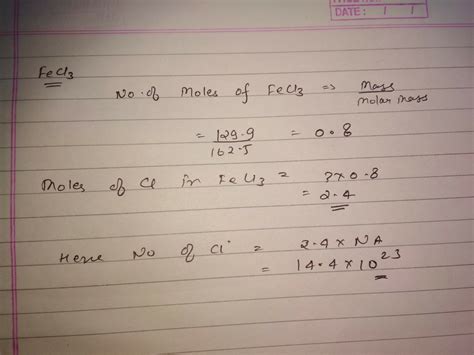 DATE: / /
FeCl3
No. of Moles of FeCl3 => Mass
molar mass
= 129.9 = 0.8
162.5
Moles of Cl in FeCl3 = 3x0.8
= 2.4
Hence No of Cl- = 2.4 x NA
= 14.4 x 10^23